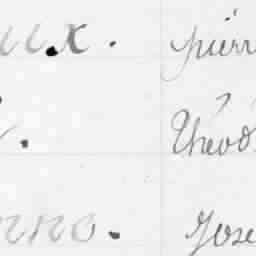 ux. pierr
. Théod
nno. Jose